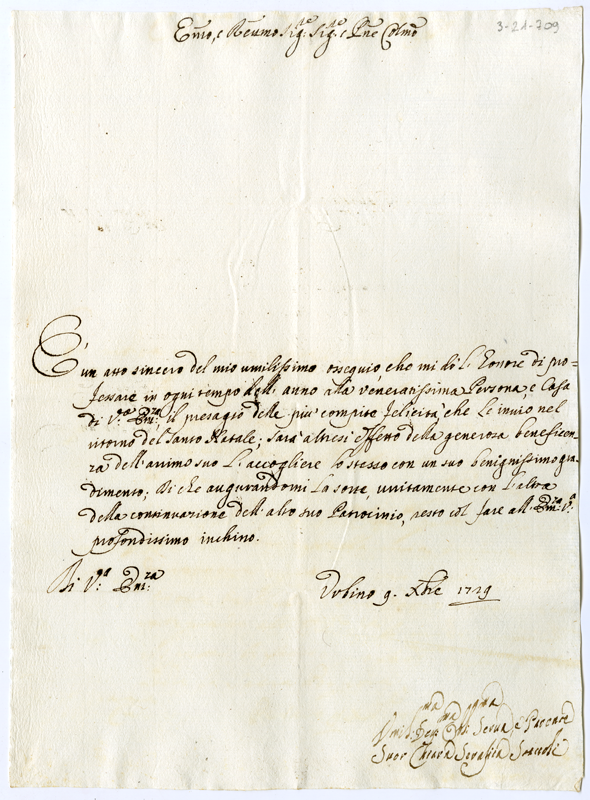 Em̃o, e Reu̇mo Sig:re Sig:re e Pne Colmo
3-21-709
È un atto sincero del mio umilissimo ossequio, che mi dà l'onore di pro=
fessare in ogni tempo dell'anno alla veneratissima Persona, e Casa
di V:ra Em:za, il presagio delle più compite felicità, che Le invio nel
ritorno del Santo Natale; sarà altresi effetto della generosa beneficen=
za dell'animo suo l'accogliere lo stesso con un suo benignissimo gra=
dimento; Di che augurandomi la sorte, unitamente con l'altra
della continuazione dell'alto suo Patrocinio, resto col fare all'Em:za V:ra
profondissimo inchino.
Di V:ra Em:za
Urbino 9. Xbre 1729
Umil:ma Dev:ma Obl:gma Serua, e
Suor Chiara Serafica